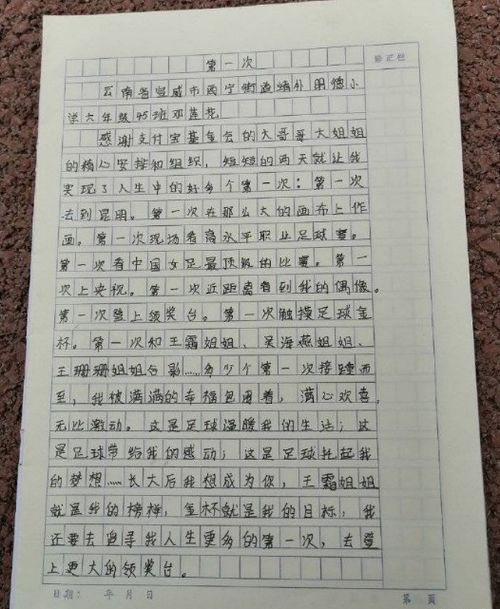 第一次
修正栏
云南省宣威市西宁街道靖外明德小
学六年级45班邓莲花
感谢支付宝基金会的大哥哥大姐姐
的精心安排和组织，短短的两天就让我
实现了人生中的好多个第一次：第一次
去到昆明。第一次在那么大的画布上作
画。第一次现场看高水平职业足球赛。
第一次看中国女足最顶级的比赛。第一
次上央视。第一次近距离看到我的偶像。
第一次登上领奖台。第一次触摸足球金
杯。第一次和王霜姐姐、吴海燕姐姐、
王珊珊姐姐合影……多少个第一次接踵而
至，我被满满的幸福包围着，满心欢喜，
无比激动。这是足球温暖我的生活；这
是足球带给我的感动；这是足球托起我
的梦想……长大后我想成为你，王霜姐姐
就是我的榜样，金杯就是我的目标，我
还要去追寻我人生更多的第一次，去登
上更大的领奖台。
日期： 年 月 日 第 页